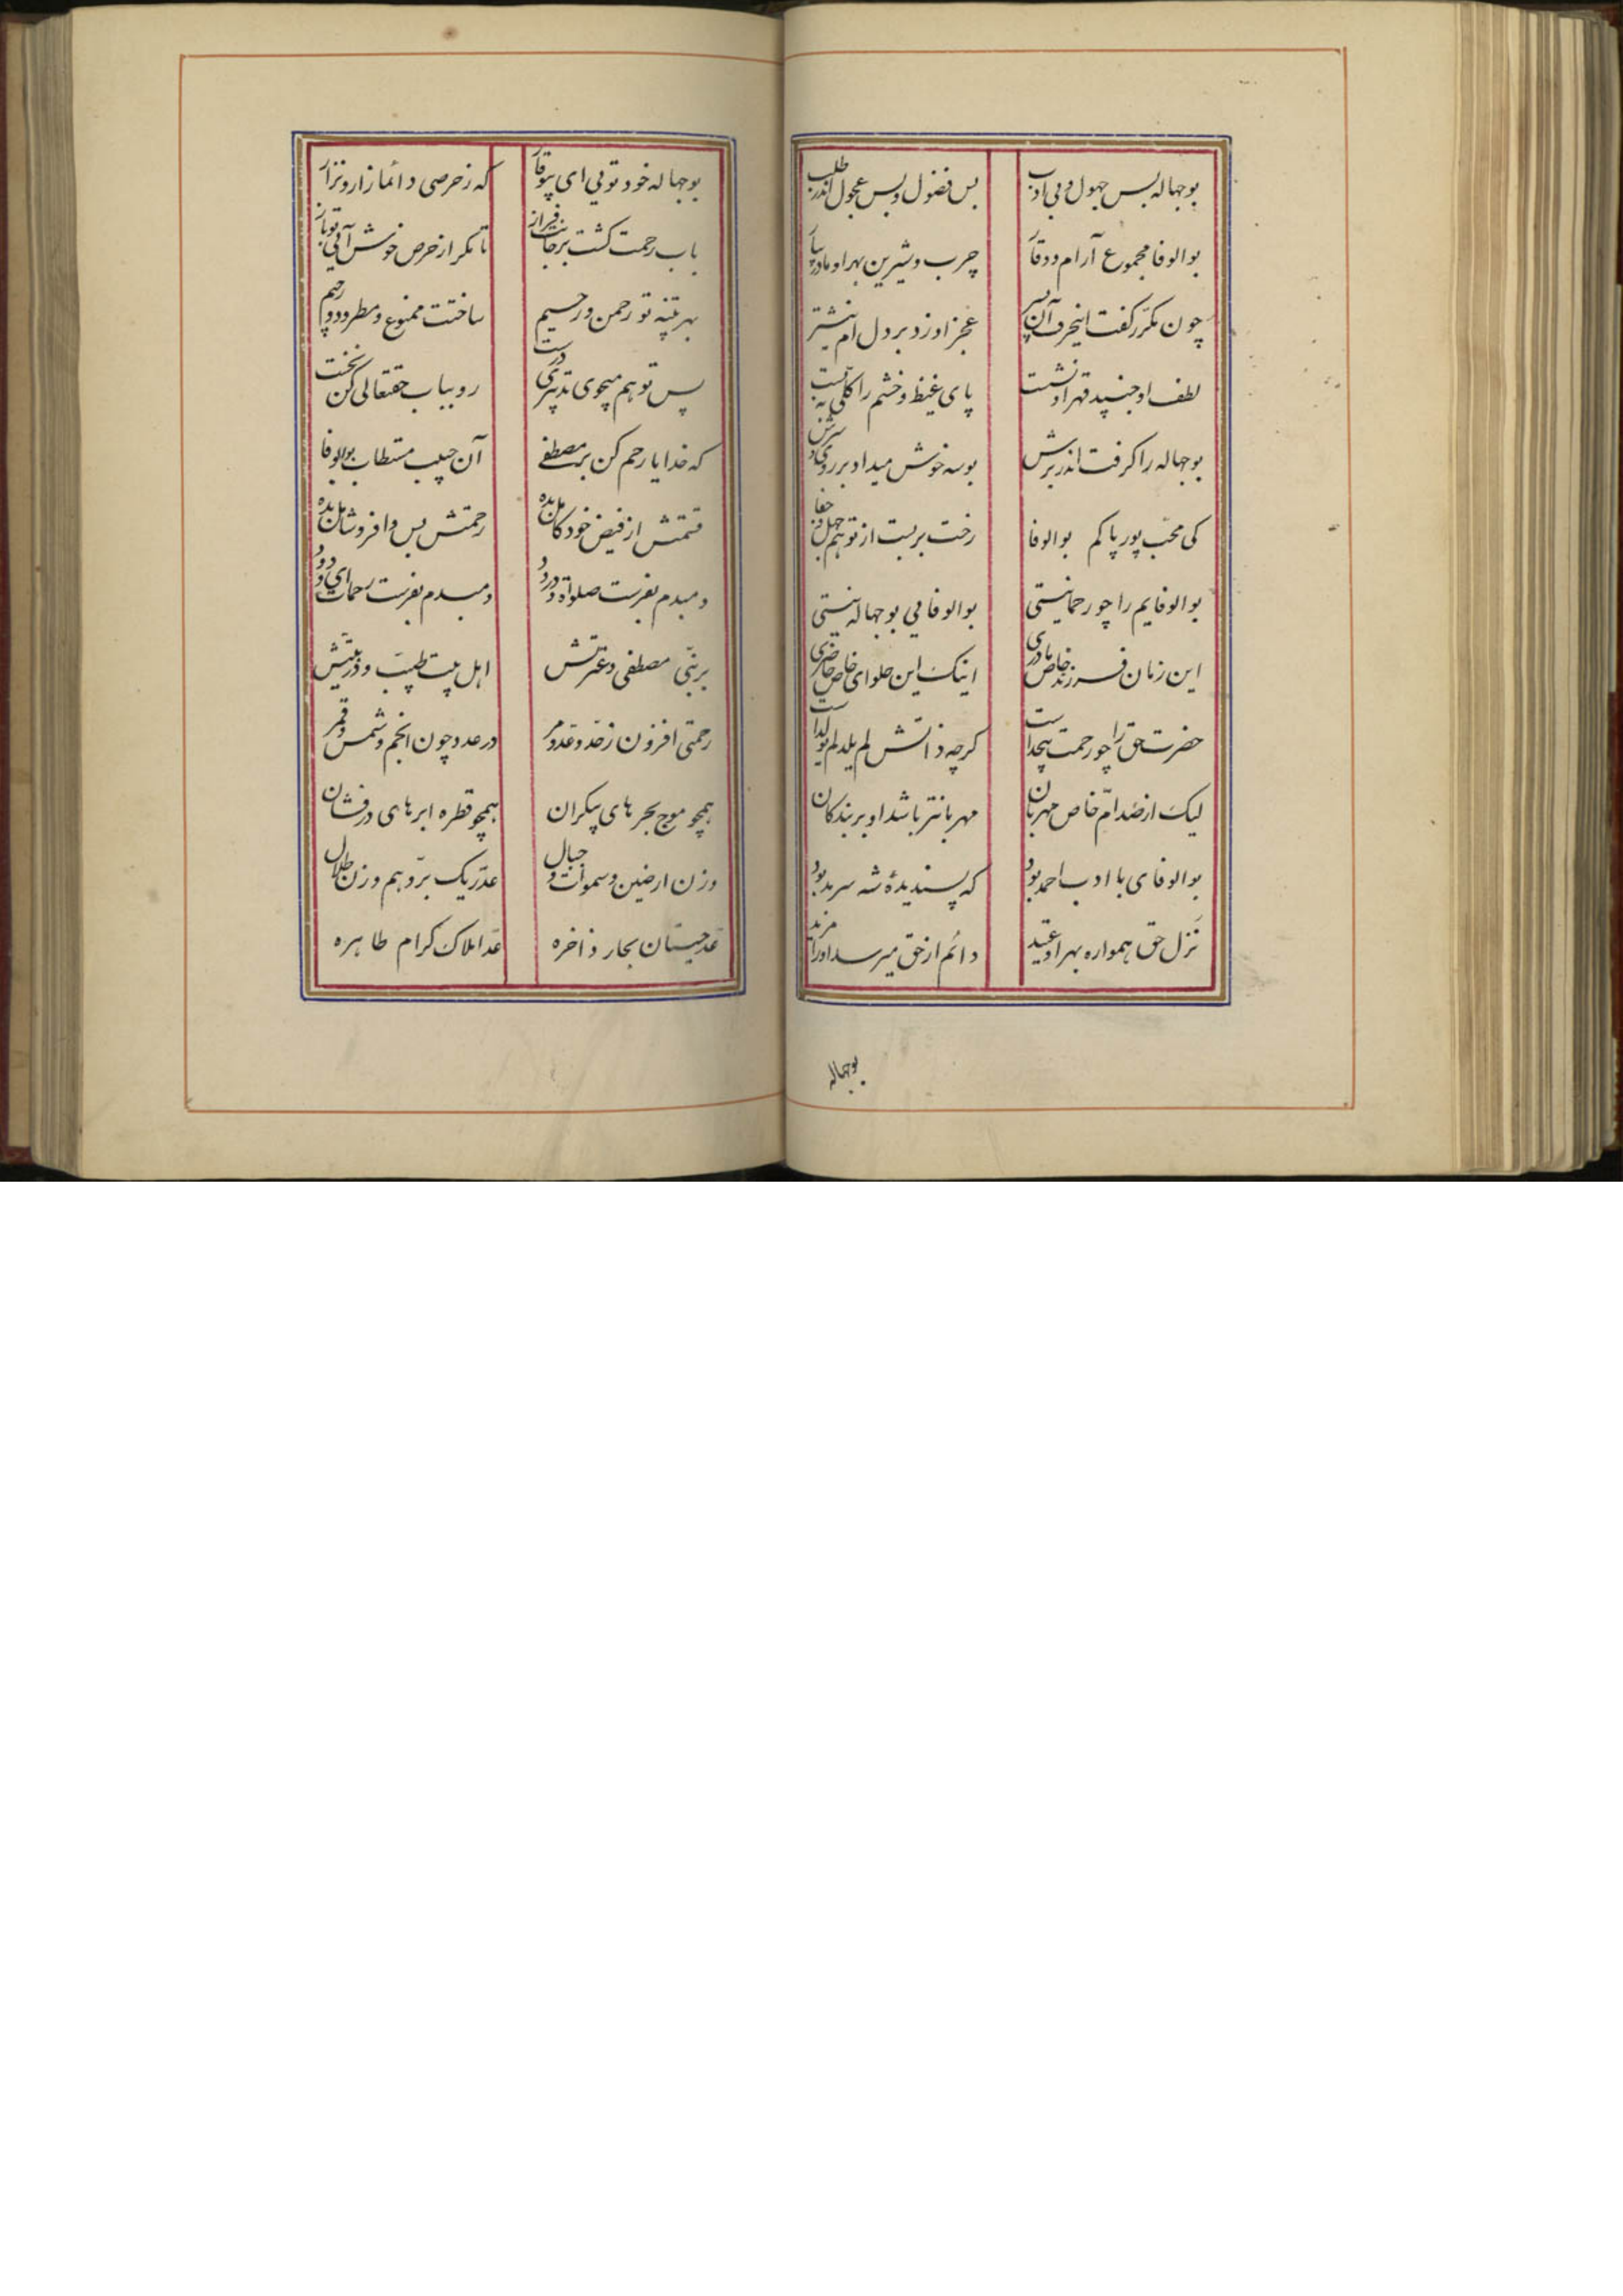 بوجهاله بس جهول و بی ادب بس فضول و بس عجول اندر طلب
بوالوفا مجموع آرام و وقار چرب و شیرین بهر او مادر بیار
چون مکرر گفت اینحرف آن پسر عجز او زد بر دل ام نیشتر
لطف او جنبید قهر او نشست پای غیظ و خشم را کلی به بست
بوجهاله را گرفت اندر برش بوسه خوش میداد بر روی و سرش
کی محب پور پاکم بوالوفا رخت بربست از تو هم جهل و جفا
بوالوفایم را چو رحمانیستی بوالوفایی بوجهاله نیستی
این زمان فرزند خاص مادری اینک این حلوای خاص حاضری
حضرت حق را چو رحمت بیحد است گرچه ذاتش لم یلد لم یولد است
لیک از صد ام خاص مهربان مهربانتر باشد او بر بندکان
بوالوفای با ادب احمد بود که پسندیدهٔ شه سرمد بود
نزل حق همواره بهر او عتید دائم از حق میرسد او را مزید
بوجهاله
بوجهاله خود تویی ای بیوقار که ز حرصی دائما زار و نزار
باب رحمت گشت بر جانت فراز تا مکر از حرص خویش آیی تو باز
بهر تنبیه تو رحمن و رحیم ساختت ممنوع و مطرود و رحیم
پس تو هم میجوی تدبیری درست رو بباب حقتعالی کن نخست
که خدایا رحم کن بر مصطفی آن حبیب مستطاب بوالوفا
قسمتش از فیض خود کامل بده رحمتش بس وافر و شامل بده
دمبدم بفرست صلواة و درود دمبدم بفرست رحمات ای ودود
بر نبی مصطفی و عترتش اهل بیت طیب و ذریتش
رحمتی افزون ز حد و عد و مر در عدد چون انجم و شمس و قمر
همچو موج بحرهای بیکران همچو قطره ابرهای درفشان
وزن ارضین و سموات و جبال عد ریک بر و هم وزن طلال
عد حیتان بحار ذاخره عد املاک کرام طاهره